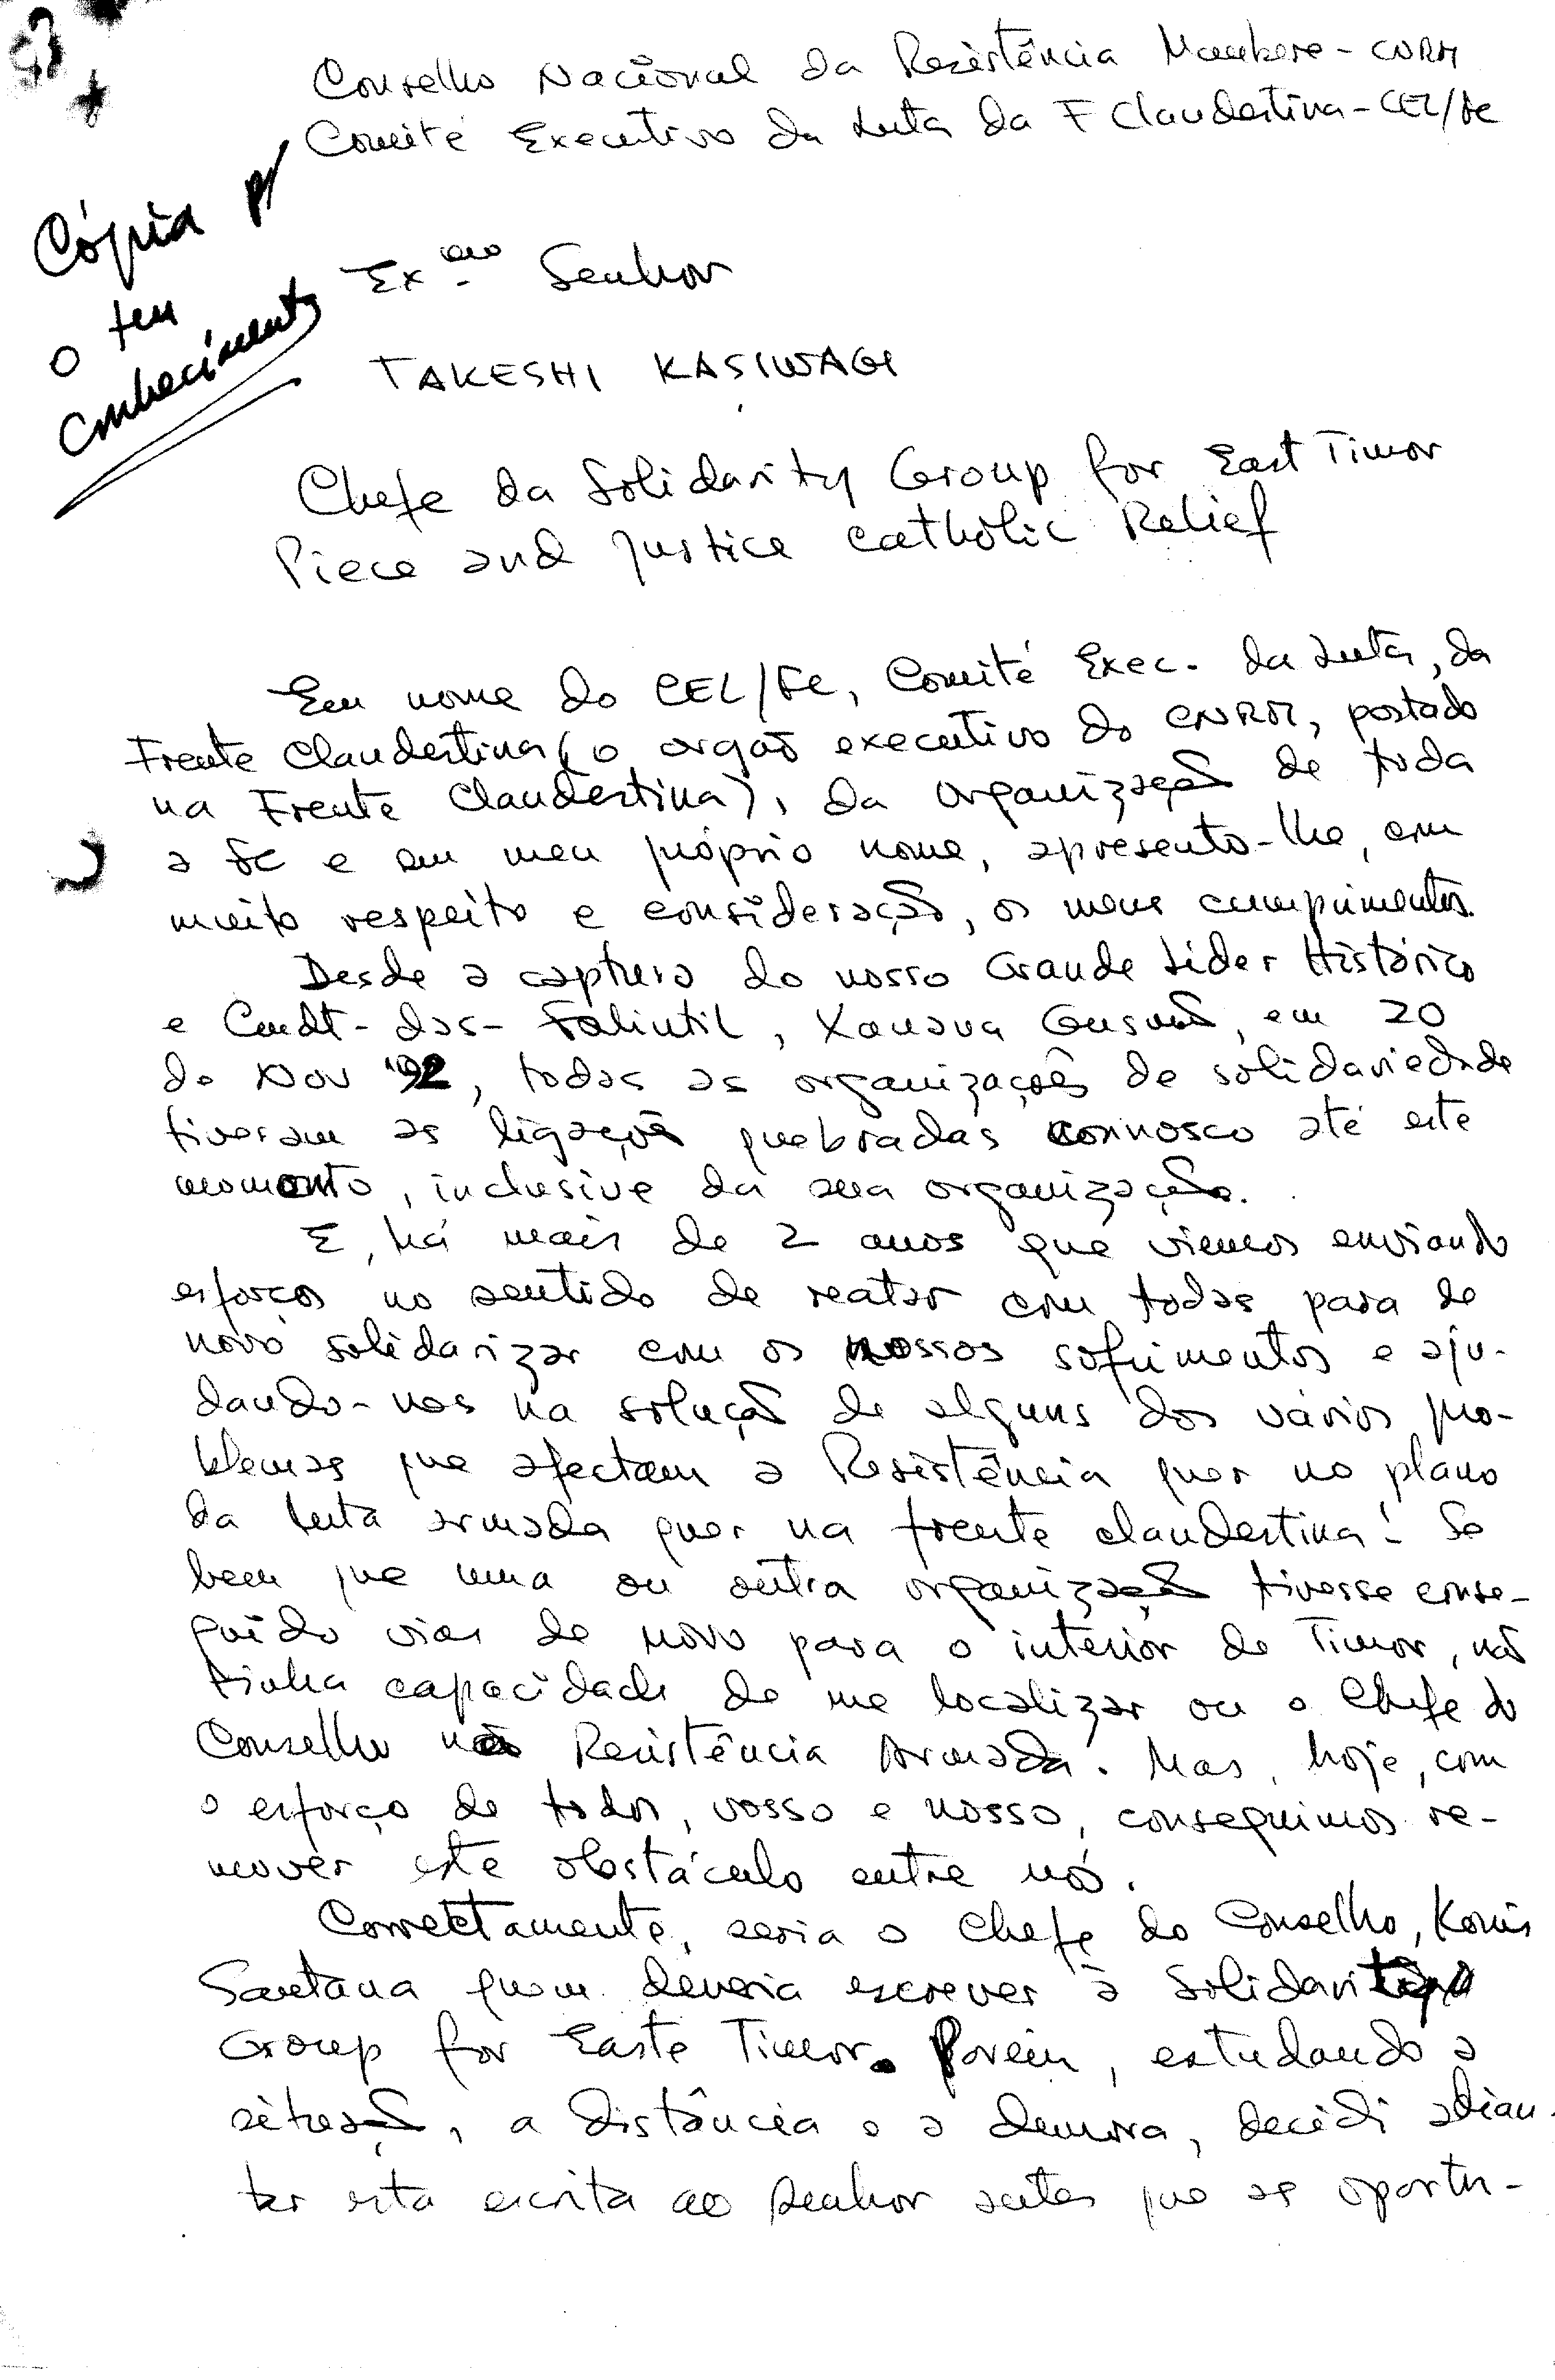 Conselho Nacional da Resistência Maubere - CNRM
Comité Executivo da Luta da F Clandestina - CEL/FC
Cópia p/
o teu
conhecimento
Ex.mo Senhor
TAKESHI KASIWAGI
Chefe da Solidarity Group for East Timor
Piece and Justice Catholic Relief
Em nome do CEL/FC, Comité Exec. da Luta, da
Frente Clandestina (o orgão executivo do CNRM, postado
na Frente Clandestina), da organização de toda
a FC e em meu próprio nome, apresento-lhe, com
muito respeito e consideração, os meus cumprimentos.
Desde a captura do nosso Grande Líder Histórico
e Cmdt-das-Falintil, Xanana Gusmão, em 20
de Nov '92, todas as organizações de solidariedade
tiveram as ligações quebradas connosco até este
momento, inclusive da sua organização.
E, há mais de 2 anos que viemos enviando
esforços no sentido de reatar com todas para de
novo solidarizar com os nossos sofrimentos e aju-
dando-nos na solução de alguns dos vários pro-
blemas que afectam a Resistência quer no plano
da luta armada quer na frente clandestina! Se
bem que uma ou outra organização tivesse conse-
guido vias de novo para o interior de Timor, não
tinha capacidade de me localizar ou o Chefe do
Conselho na Resistência Armada. Mas, hoje, com
o esforço de todos, vosso e nosso, conseguimos re-
mover este obstáculo entre nós.
Correctamente, seria o Chefe do Conselho, Konis
Santana quem deveria escrever à Solidarity
Group for Easte Timor. Porém, estudando a
situação, a distância e a demora, decidi adian-
tar esta escrita ao senhor antes que as oportu-